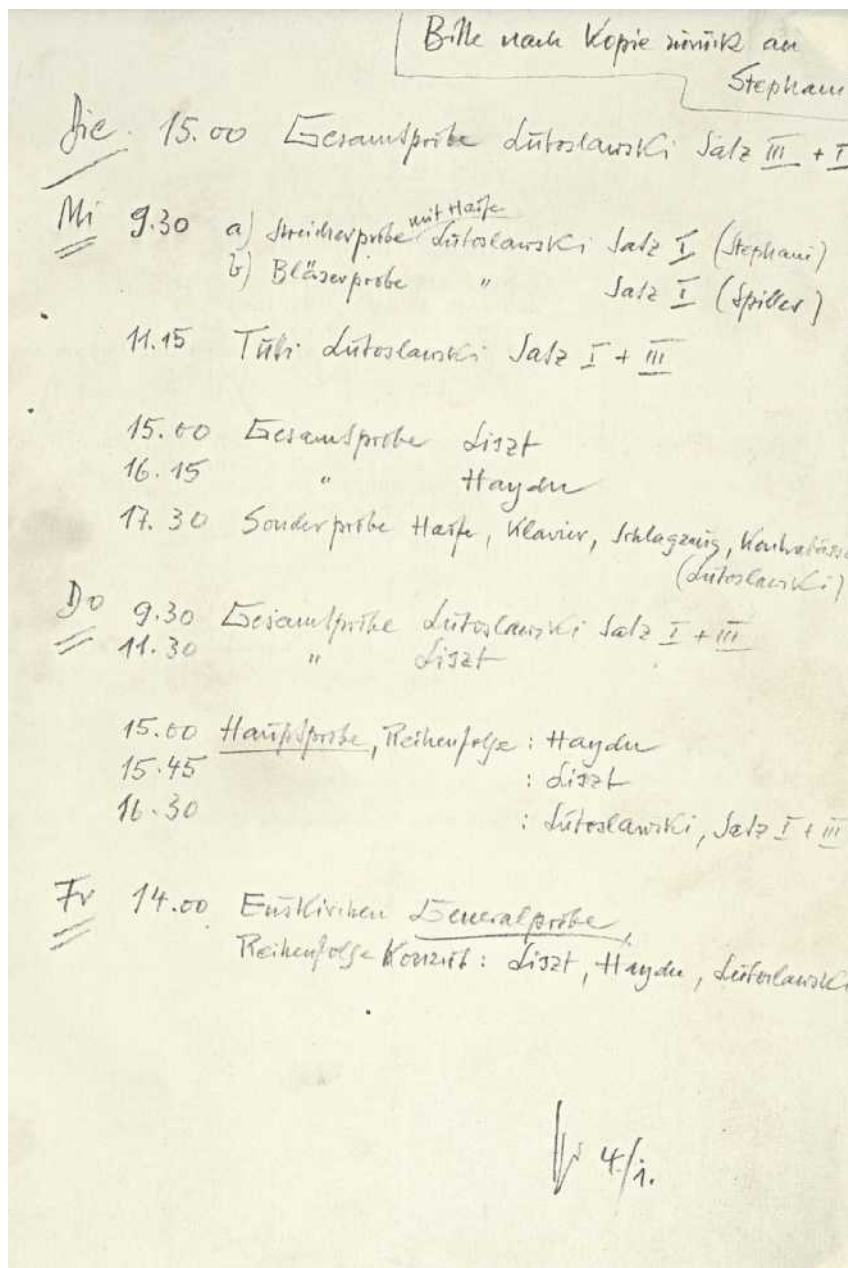 Bitte nach Kopie zurück an
Stephani
Die. 15.00 Gesamtprobe Lutoslawski Satz III + I
Mi 9.30 a) Streicherprobe mit Harfe Lutoslawski Satz I (Stephani)
b) Bläserprobe " Satz I (Spiller)
11.15 Tutti Lutoslawski Satz I + III
15.00 Gesamtprobe Liszt
16.15 " Haydn
17.30 Sonderprobe Harfe, Klavier, Schlagzeug, Kontrabässe
(Lutoslawski)
Do 9.30 Gesamtprobe Lutoslawski Satz I + III
11.30 " Liszt
15.00 Hauptprobe, Reihenfolge : Haydn
15.45 : Liszt
16.30 : Lutoslawski, Satz I + III
Fr 14.00 Euskirchen Generalprobe,
Reihenfolge Konzert : Liszt, Haydn, Lutoslawski
4/1.